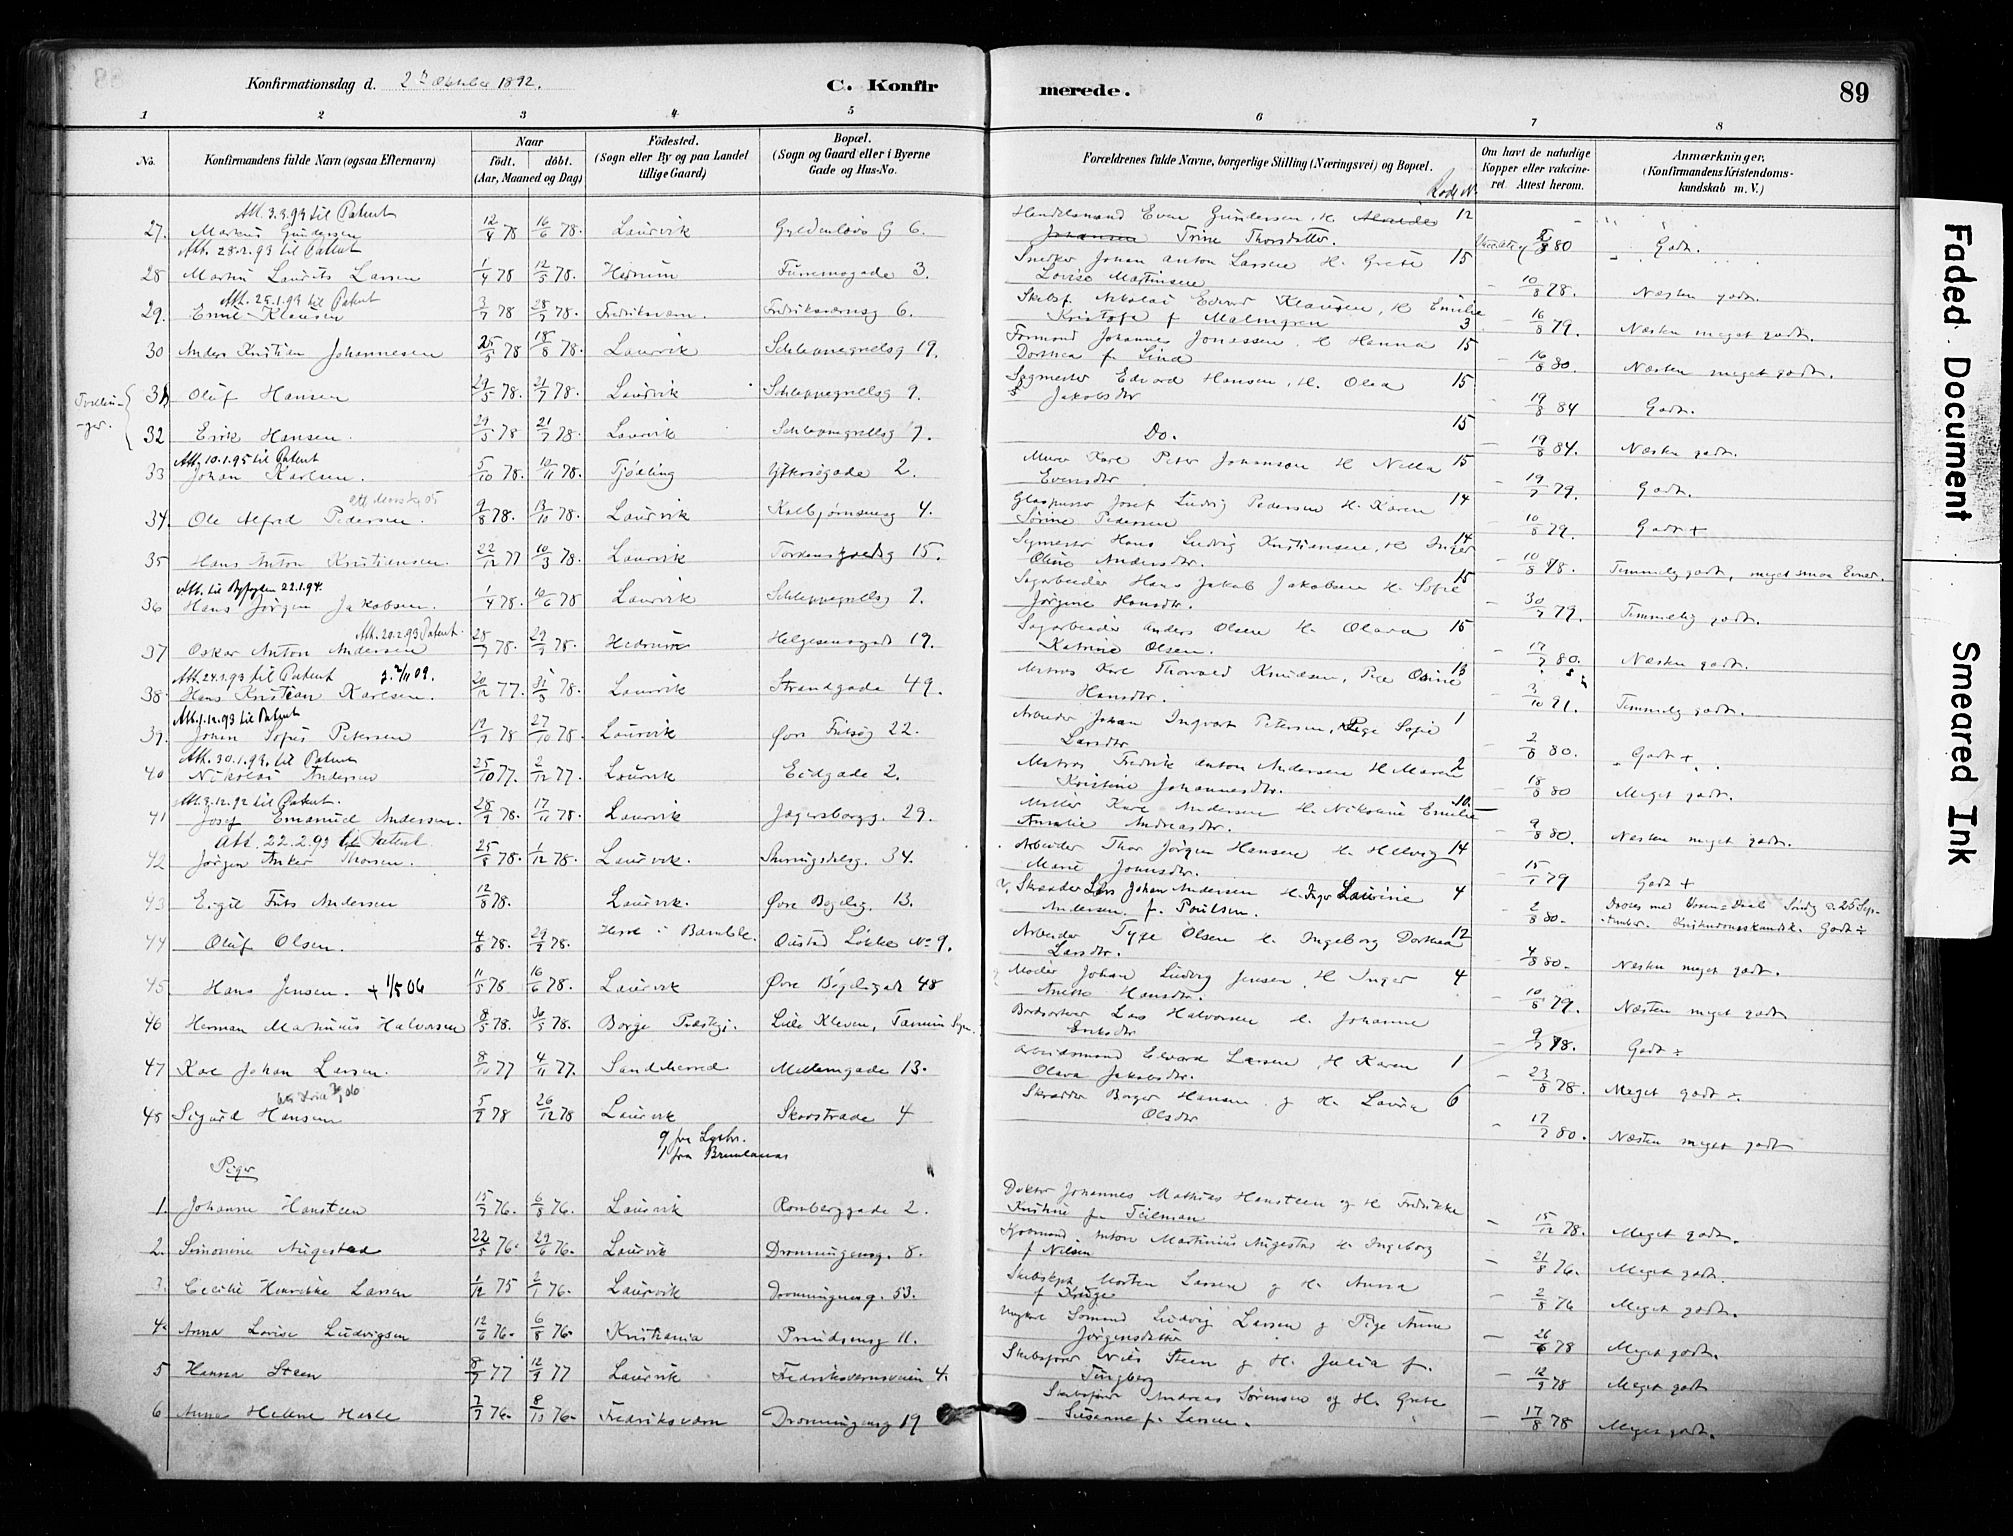 Konfirmationsdag d. 2den Oktober 1892.
C. Konfirmerede.
89
1 2 3 4 5 6 7 8
No.
Konfirmandens fulde Navn (ogsaa Efternavn)
Naar
født. døbt.
(Aar, Maaned og Dag)
Fødested.
(Sogn eller By og paa Landet
tillige Gaard)
Bopæl.
(Sogn og Gaard eller i Byerne
Gade og Hus-No.
Forældrenes fulde Navne, borgerlige Stilling (Næringsvei) og Bopæl.
Rode N.
Om havt de naturlige
Kopper eller vakcine-
ret. Attest herom.
Anmærkninger,
(Konfirmandens Kristendoms-
kundskab m. V.)
Att. 3.3.93 til Patent
27. Markus Gundersen 12/4 78 16/6 78. Laurvik Gyldenløvs G 6. Handelsmand Even Gundersen, H. 12
Johansen Trine Thorsdatter. 80 Godt.
Att. 28.2.93 til Patent
28 Martin Laurits Larsen 1/4 78 12/5 78. Hedrum Furremogade 3. Snedker Johan Anton Larsen H. Grete 15
Lovise Martinsen 10/8 78. Næsten godt.
Att. 25.1.93 til Patent
29. Emil Klausen 3/7 78 28/7 78. Fredriksværn. Fredriksværnsg 6. Skibsf. Nikolai Edvard Klausen, H. Emilie
Kristofa f. Malmgren 3 16/8 79. Næsten meget godt.
30 Anders Kristian Johannesen 25/5 78 18/8 78. Laurvik Schleppegrellsg 19. Formand Johannes Jonassen, H. Hanna 15
Dorthea f. Lind 16/8 80. Næsten meget godt.
Tvillin-
-ger.
31 Oluf Hansen 29/5 78. 21/7 78. Laurvik Schleppegrellsg 9. Sagmester Edvard Hansen, H. Olea 15
Jakobsdtr 19/8 84 Godt.
32 Erik Hansen. 29/5 78 21/7 78. Laurvik Schleppegrellsg 9. Do. 15
19/8 84. Næsten godt.
Att. 10.1.95 til Patent
33 Johan Karlsen. 5/10 78. 10/11 78. Tjødling 2. Murer Karl Peter Johansen H. Nella 15
Evensdtr 19/7 79. Godt.
34. Ole Alfred Pedersen. 9/8 78. 13/10 78. Laurvik Kalbjørnsensg 4. Glaspuster Josef Ludvig Pedersen H. Karen 14
Sørine Pedersen 10/8 79. Godt +
35 Hans Anton Kristiansen. 22/12 77 10/3 78. Laurvik Tordenskjoldsg 15. Sagmester Hans Ludvig Kristiansen, H. Inger 14
Oline Andersdtr. 10/8 78. Temmelig godt, meget smaa Evner.
Att. til Byfogden 22.1.94.
36 Hans Jørgen Jakobsen. 1/4 78. 10/6 78 Laurvik Schleppegrellsg 9. Sagarbeider Hans Jakob Jakobsen H. Sofie 15
Jørgine Hansdtr. 30/7 79. Temmelig godt.
Att. 20.2.93 Patent.
37 Oskar Anton Andersen 28/7 78. 29/9 78. Hedrum Helgesensgade 19. Sagarbeider Anders Olsen H. Olava 15
Katrine Olsen. 17/7 80. Næsten godt.
Att. 24.1.93 til Patent 2/11 09.
38. Hans Kristian Karlsen. 20/12 77. 31/3 78. Laurvik Strandgade 49. Matros Karl Thorvald Knudsen, Pige Oline 13
Hansdtr. 3/10 91. Temmelig godt.
Att. 1.12.93 til Patent
39. Johan Sofus Petersen 19/9 78 27/10 78. Laurvik Øvre Fritsøg 22. Arbeider Johan Ingvart Petersen, Pige Sofie 1
Larsdtr 2/8 80. Godt +
Att. 30.1.93. til Patent
40 Nikolai Andersen 25/10 77. 2/12 77. Laurvik Eidgade 2. Matros Fredrik Anton Andersen H. Maren 2
Kristine Johannesdtr. 18/8 80 Meget godt.
Att. 3.12.92 til Patent.
41 Josef Emanuel Andersen. 28/9 78. 17/11 78. Laurvik Jægersborgg. 29. Møller Karl Andersen H. Nikoline Emilie 10.
Amalie Andreasdtr. 9/8 80. Næsten meget godt.
Att. 22.2.93 til Patent.
42 Jørgen Anker Thorsen. 25/8 78. 1/12 78. Laurvik. 34. Arbeider Thor Jørgen Hansen H. Helvig 14
Marie Johnsdtr. 15/1 79 Godt +
43 Eigil Frits Andersen 12/8 78. Laurvik. Øvre Bøgelig. 13. Skræder Lars Johan Andersen H. Inger Laurine 4
Andersen f. Poulsen. 2/8 80. Døbes med 25 Sep-
-tember. Godt ÷
44 Oluf Olsen. 4/8 78. 29/9 78. Herre i Bamble. Løkke No 9. Arbeider Tyge Olsen H. Ingeborg Dorthea 12
Larsdtr. 4/8 80. Næsten meget godt.
45. Hans Jensen. + 1/5 06 11/5 78 16/6 78. Laurvik Øvre Bøgeligade 48 Johan Ludvig Jensen, H. Inger 4
Anette Hansdtr. 10/8 79. Næsten meget godt
46 Herman Martinius Halvorsen 8/5 78. 30/5 78. Borge Præstegj. Lille Kleven, Tanum Sogn. Lars Halvorsen H. Johanne
Eriksdtr 9/7 78. Godt ÷
47 Karl Johan Larsen. 8/10 77 4/11 77. Sandeherred Mellemgade 13. Arbeidsmand Edvard Larsen, H. Karen 1
Olava Jakobsdtr. 23/8 78. Meget godt ÷.
48 Sigurd Hansen 5/9 78 26/12 78 Laurvik Skovstræde 4 Skrædder Borger Hansen og H. Lovise 6
Olsdtr 17/7 80. Næsten meget godt
9 fra Lysbr.
1 fra Brunlanes
Piger
1. Johanne Hansteen 15/7 76. 6/8 76. Laurvik Romberggade 2. Doktor Johannes Mathias Hansteen og H. Fredrikke
Kristine f. Teilman 15/12 78. Meget godt.
2. Simonine Augestad 22/5 76. 29/6 76. Laurvik Dronningensg. 8. Kjøbmand Anton Martinius Augestad H. Ingeborg
f. Nilsen 21/8 76. Meget godt.
3. Cecilie Henrikke Larsen 1/12 75 2/1 76. Laurvik Dronningensg. 53. Skibskpt. Morten Larsen og H. Anna
f. Krüge 2/8 76 Meget godt.
4. Anna Lovise Ludvigsen 12/6 76. 6/8 76. Kristiania Prindsensg 11. Ludvig Larsen og Pige Anne
Jørgensdatter 26/6 78 Meget godt.
5 Hanna Steen 8/7 77 12/9 77 Laurvik Fredriksværnsveien 4. Skibsfører Nils Steen og H. Julia f.
Tengberg 12/9 78 Meget godt
6 Anna Helene Hasle 7/7 76. 8/10 76. Fredriksværn Dronningensg 19 Skibsfører Andreas Sørensen og H. Grete
Susanne f. Larsen. 17/8 78 Meget godt.
Faded Document
Smeared Ink